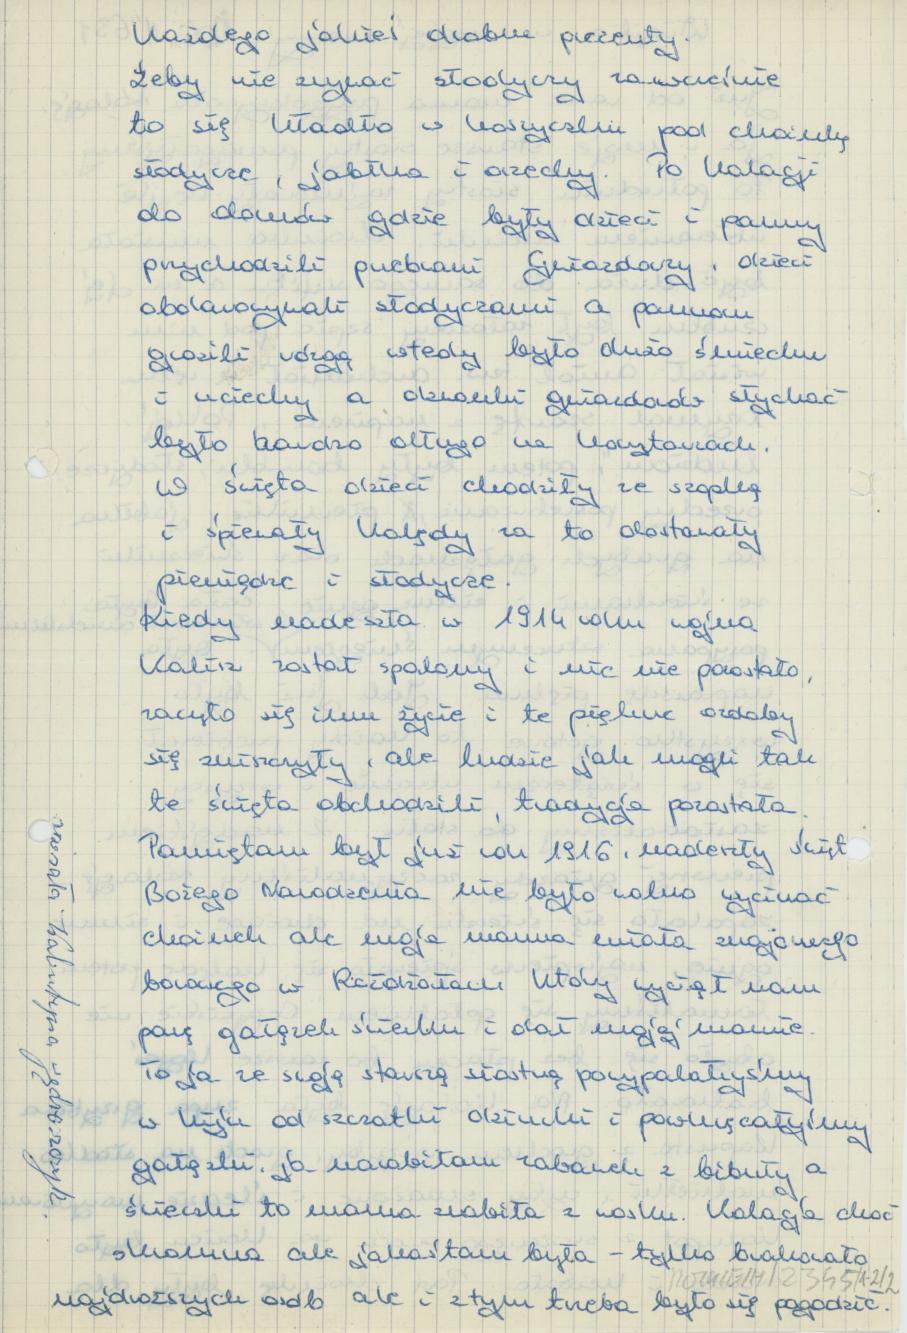 każdego jakieś drobne prezenty.
Żeby nie zrywać słodyczy zawcześnie
to się kładło w koszyczku pod choinkę
słodycze, jabłka i orzechy. Po kolacji
do domów gdzie były dzieci i panny
przychodzili przebrani Gwiazdorzy, dzieci
obdarowywali słodyczami a pannom
grozili rózgą, wtedy było dużo śmiechu
i uciechy a dzwonki gwiazdorów słychać
było bardzo długo na korytarzach.
W święta dzieci chodziły ze szopką
i śpiewały kolędy za to dostawały
pieniądze i słodycze.
Kiedy nadeszła w 1914 roku wojna
Kalisz został spalony i nic nie pozostało,
zaczęło się inne życie i te piękne ozdoby
się zniszczyły, ale ludzie jak mogli tak
te święta obchodzili, tradycja pozostała.
Pamiętam był już rok 1916, nadeszły święt
Bożego Narodzenia nie było wolno wycinać
choinek ale moja mama miała znajomego
borowego w który wyciął nam
parę gałązek świerku i dał mojej mamie.
To ja ze swoją starszą siostrą powypalałyśmy
w kiju od szczotki dziurki i powkręcałyśmy
gałązki, ja narobiłam zabawek z bibuły a
świeczki to mama zrobiła z wosku. Kolacja choć
skromna ale jakaśtam była – tylko brakowało
najdroższych osób ale i z tym trzeba było się pogodzić.